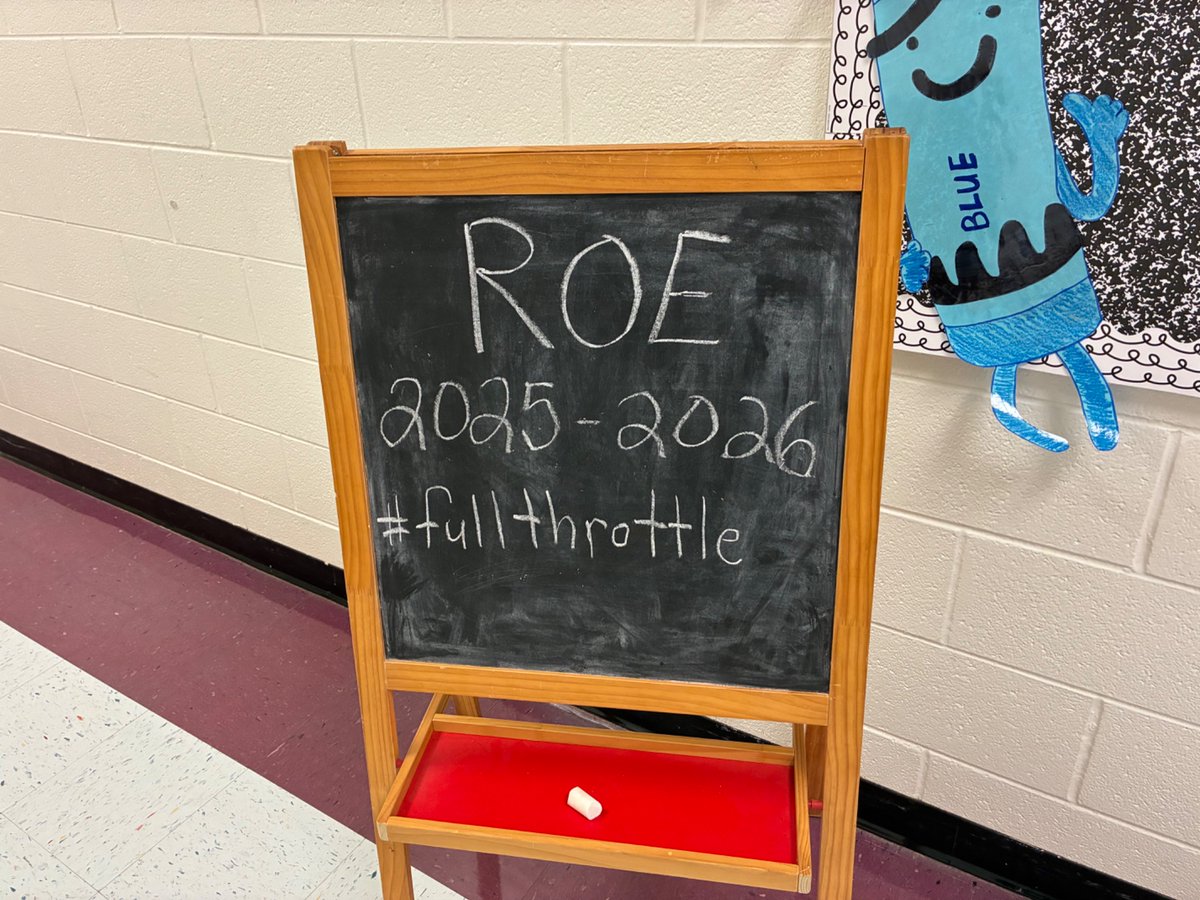 ROE
2025-2026
#fullthrottle
BLUE